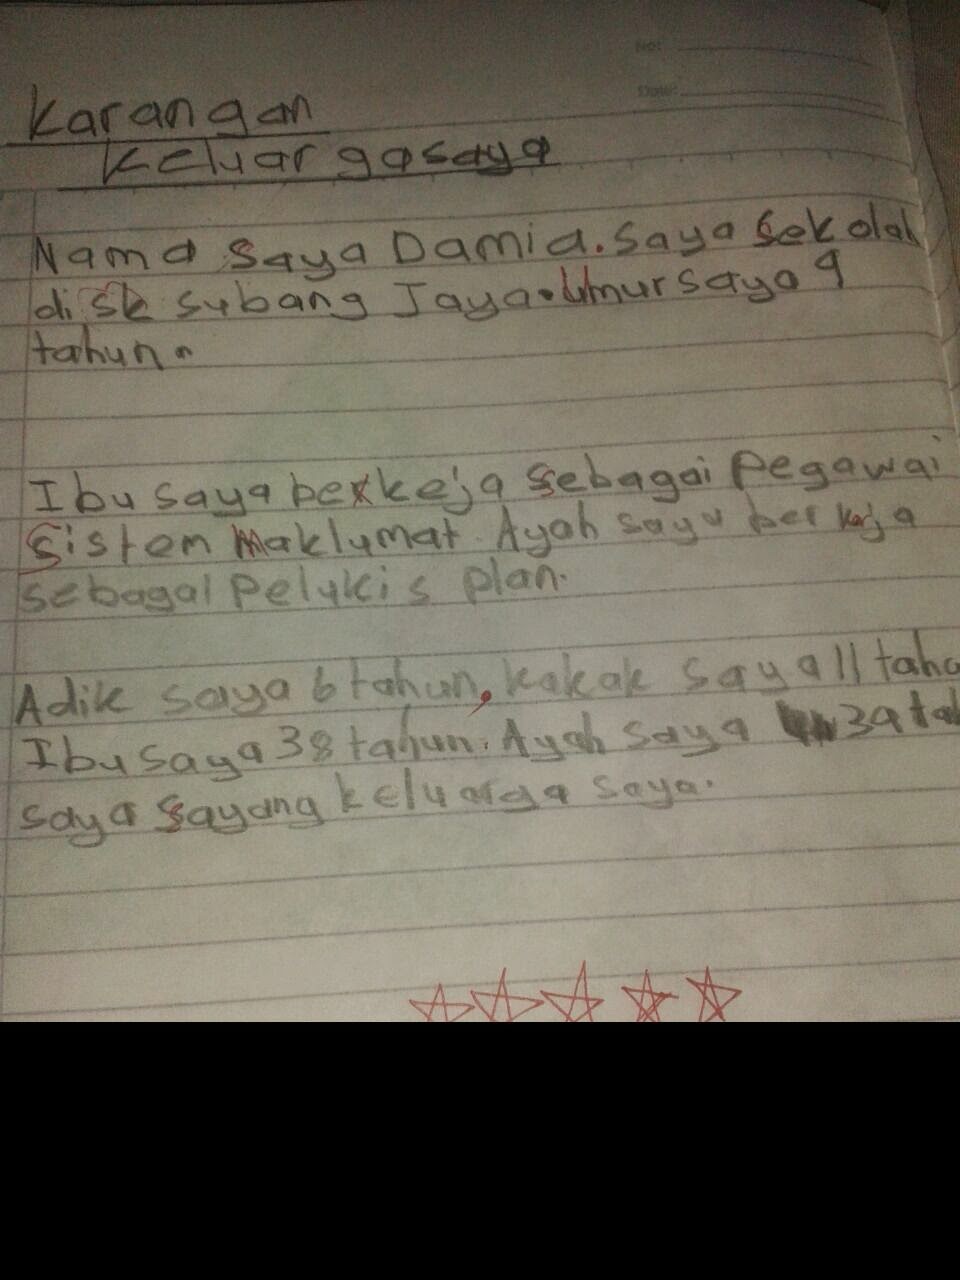 No:
Date:
Karangan
Keluargasaya
Nama saya Damia. Saya Sekolah
di sk subang Jaya. Umur saya 9
tahun.
Ibu saya bekkeja sebagai Pegawai
Sistem Maklumat. Ayah saya berkerja
sebagai Pelukis plan.
Adik saya 6 tahun, kakak saya 11 tahu
Ibu saya 38 tahun. Ayah saya 39 tah
saya sayang keluarga saya.